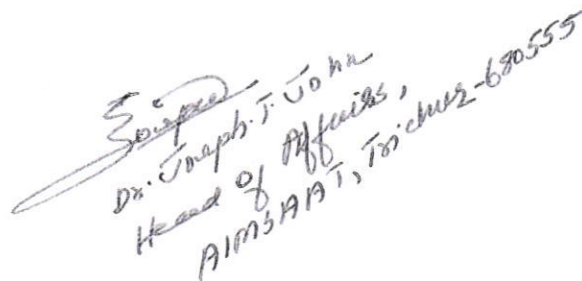 Dr. Joseph. T. John
Head of Affairs,
AIMSAAT, Trichur-680555